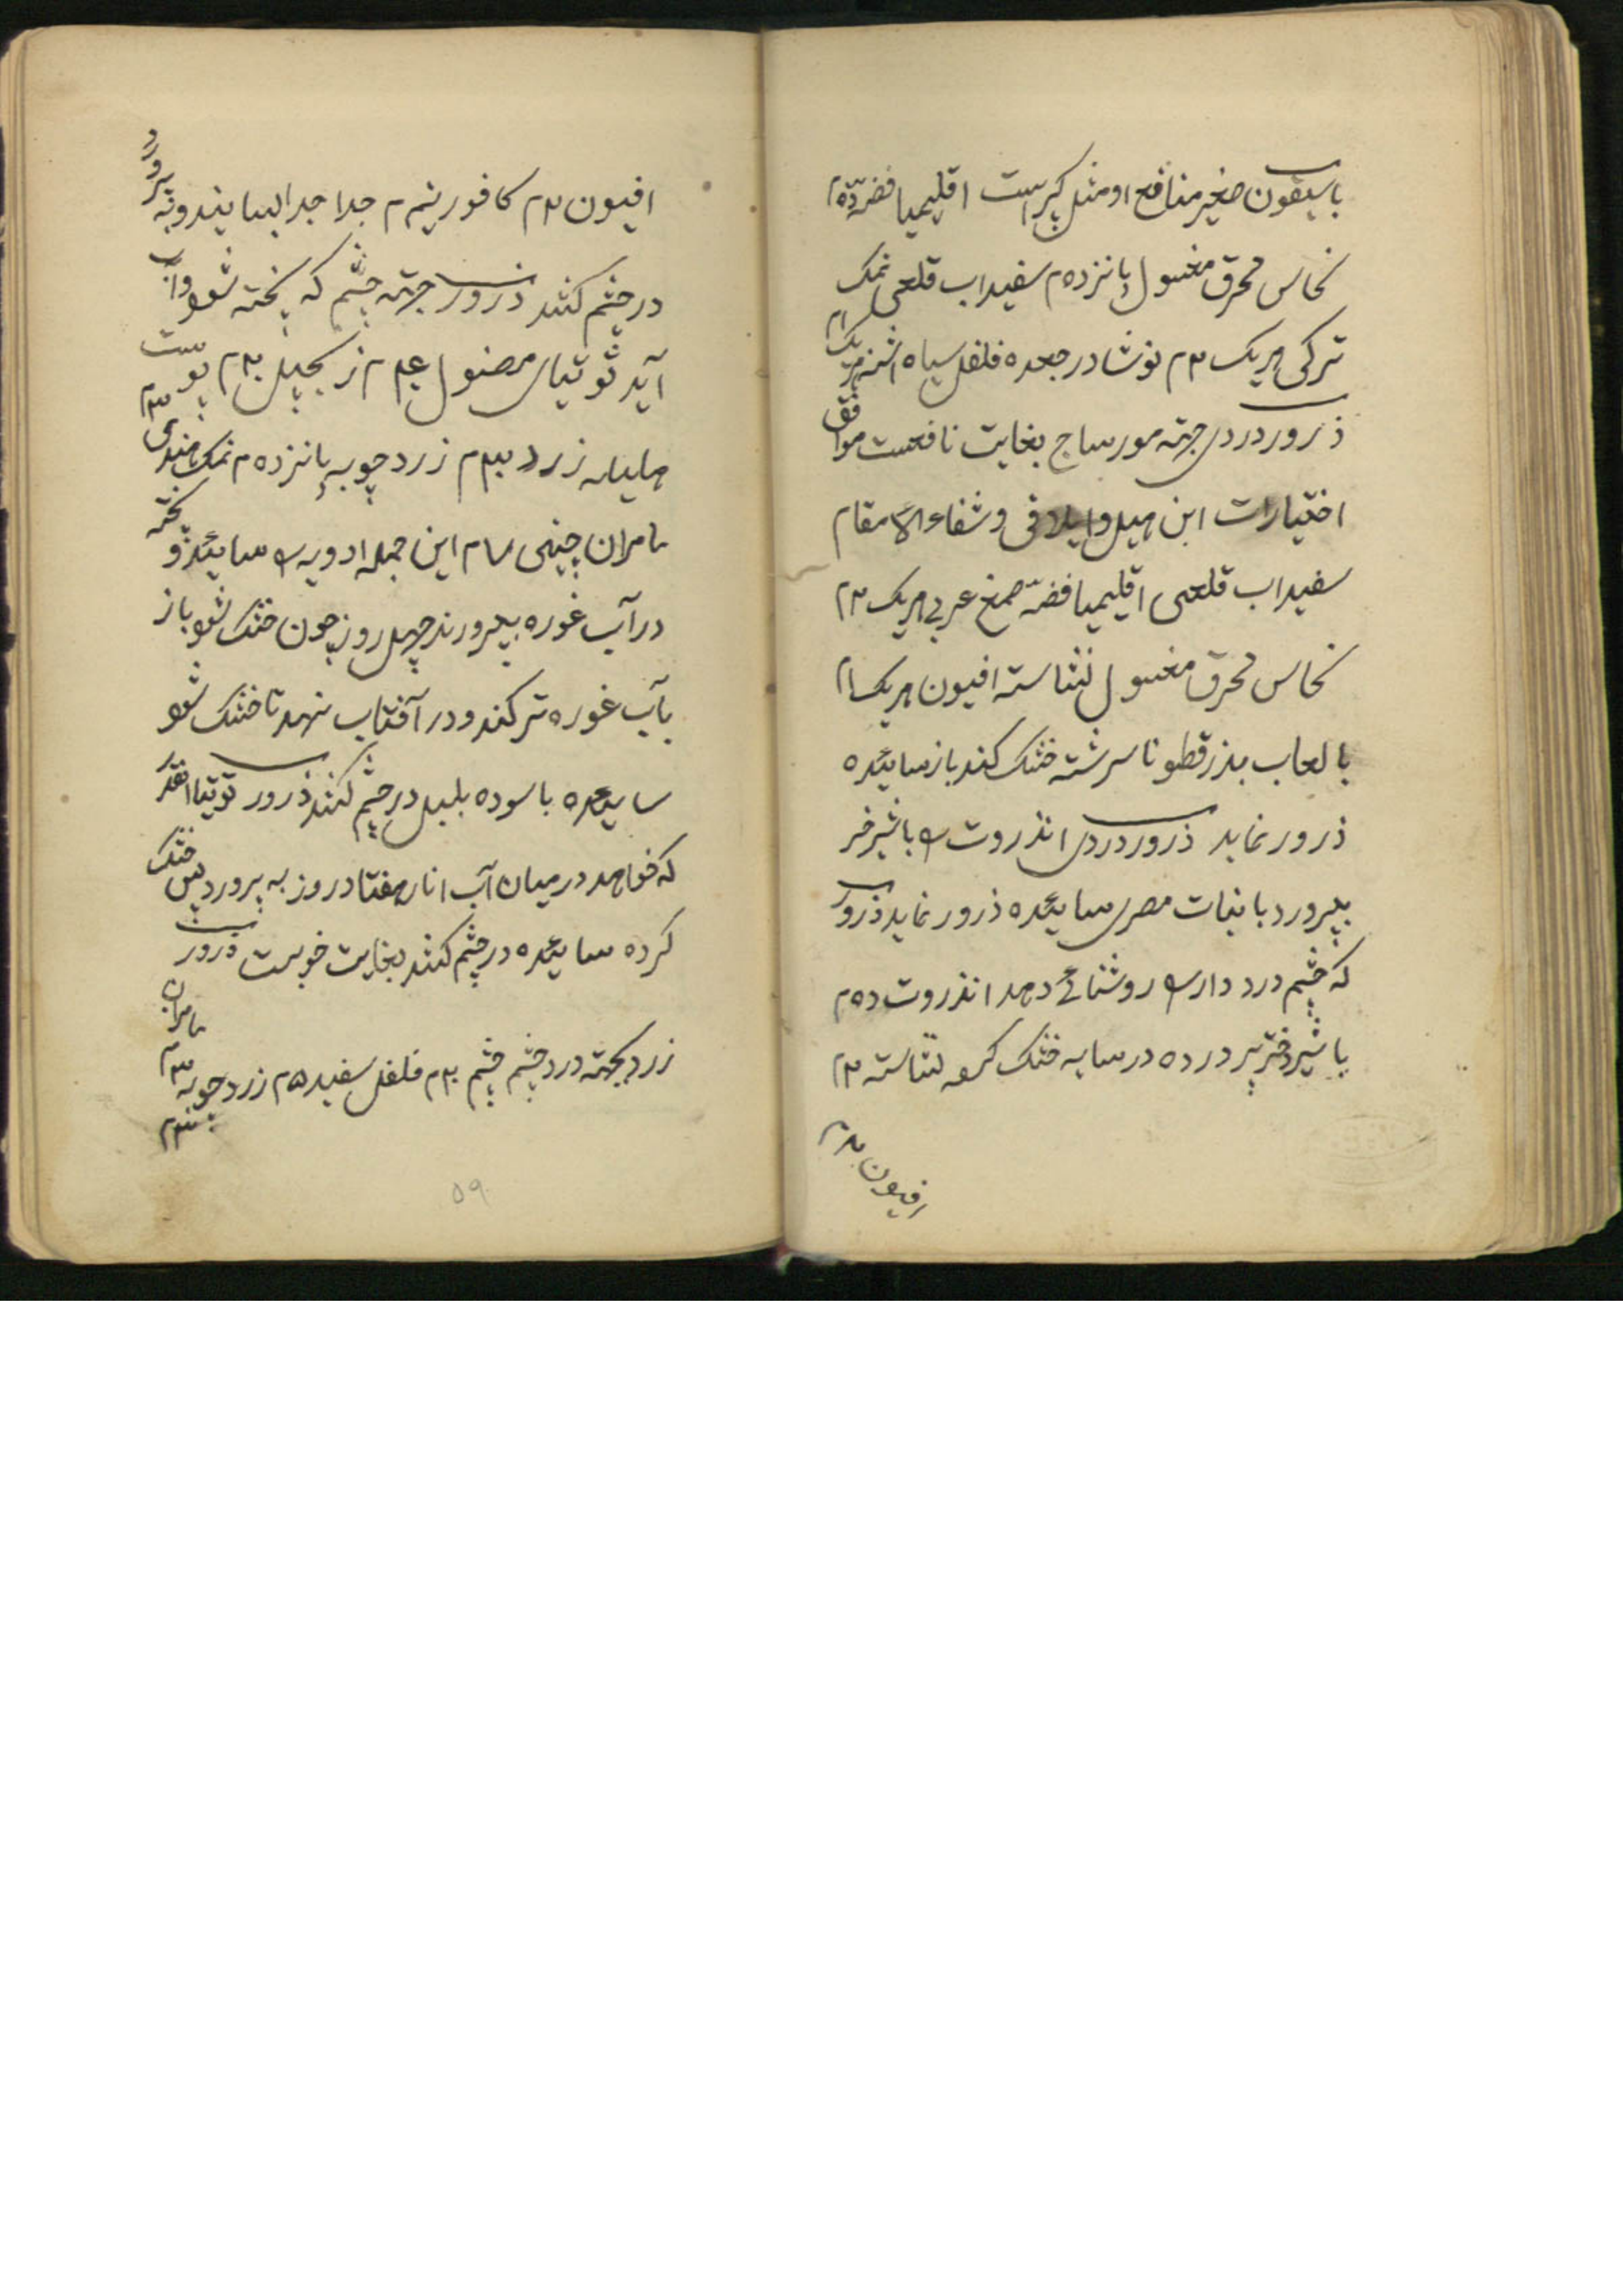 باسیقون صغیر منافع او مثل کبیر است اقلیمیا فضه ده م
نحاس محرق مغسول پانزده م سفیداب قلعی نمک
ترکی هر یک م نوشادر جعده فلفل سیاه اشنه هر یک ام
ذرور دردی جهته مورساج بغایت نافعست موافق
اختیارات ابن هبل و ایلاقی و شفاء الاسقام
سفیداب قلعی اقلیمیا فضه صمغ عربی هر یک م
نحاس محرق مغسول نشاسته افیون هر یک ام
با لعاب بذرقطونا سرشته خشک کند باز سائیده
ذرور نماید ذرور دردی انذروت را با شیر خر
بپرورد با نبات مصری سائیده ذرور نماید ذرور
که چشم درد دارد را روشنائی دهد انذروت ده م
با شیر دختر پرورده در سایه خشک کرده نشاسته م
افیون م
افیون م کافور نیم م جدا جدا بسایند و به پرورد
در چشم کنند ذرور جهته چشم که پخته شود و آب
آید توتیای مصول م زنجبیل م پوست
هلیله زرد م زرد چوبه پانزده م نمک هندی م
مامیران چینی م این جمله ادویه را سائیده و پخته
در آب غوره بپرورند چهل روز چون خشک شود باز
بآب غوره تر کند و در آفتاب نهد تا خشک شود
سائیده با سوده بلبل در چشم کنند ذرور توتیا انقدر
که خواهد در میان آب انار هفتاد روز به پرورد پس خشک
کرده سائیده در چشم کنند بغایت خوبست ذرور
زرد بجهته درد چشم چشم م فلفل سفید ۵ م زرد چوبه م مامیران م
۵۹